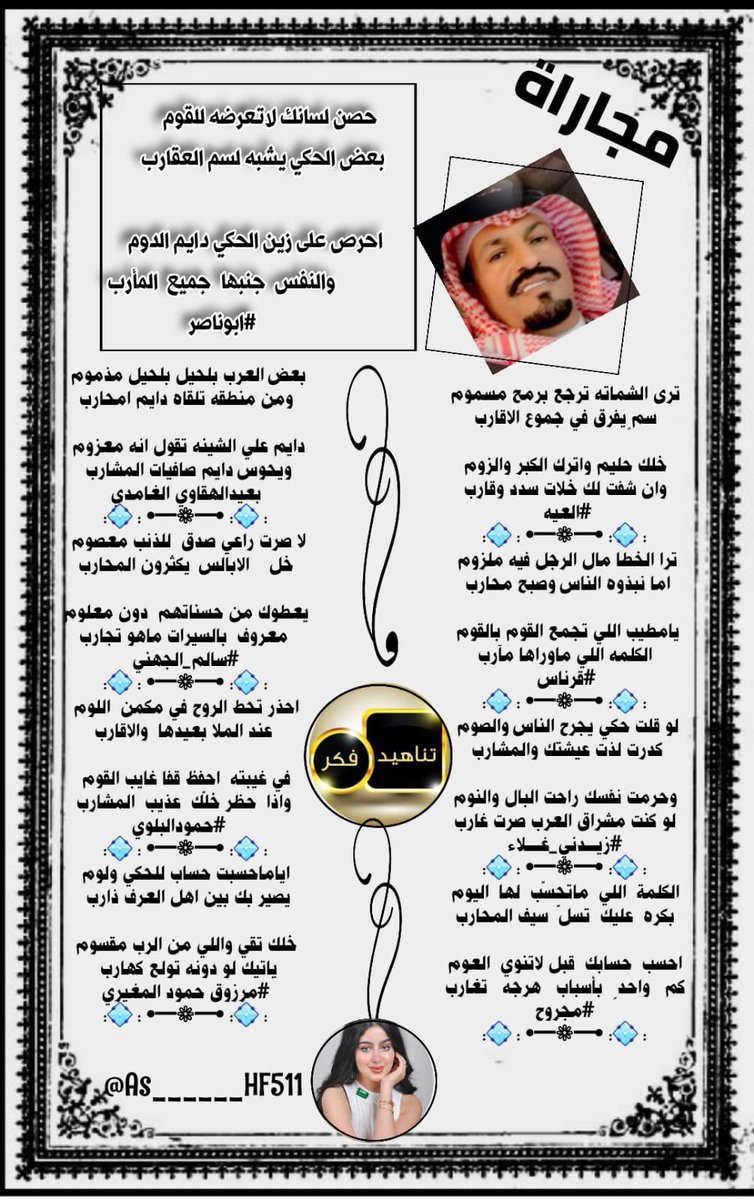 مجاراة
حصن لسانك لاتعرضه للقوم
بعض الحكي يشبه لسم العقارب
احرص على زين الحكي دايم الدوم
والنفس جنبها جميع المأرب
#ابوناصر
ترى الشماته ترجع برمح مسموم
سم يفرق في جموع الاقارب
خلك حليم واترك الكبر والزوم
وان شفت لك خلات سدد وقارب
#العيه
ترا الخطا مال الرجل فيه ملزوم
اما نبذوه الناس وصبح محارب
يامطيب اللي تجمع القوم بالقوم
الكلمه اللي ماوراها مآرب
#قرناس
لو قلت حكي يجرح الناس والصوم
كدرت لذت عيشتك والمشارب
وحرمت نفسك راحت البال والنوم
لو كنت مشراق العرب صرت غارب
#زيــدني_غــلاء
الكلمة اللي ماتحسّب لها اليوم
بكره عليك تسلّ سيف المحارب
احسب حسابك قبل لاتنوي العوم
كم واحدٍ بأسباب هرجه تغارب
#مجروح
بعض العرب بلحيل بلحيل مذموم
ومن منطقه تلقاه دايم امحارب
دايم علي الشينه تقول انه معزوم
ويحوس دايم صافيات المشارب
بعيدالهقاوي الغامدي
لا صرت راعي صدق للذنب معصوم
خل الابالس يكثرون المحارب
يعطوك من حسناتهم دون معلوم
معروف بالسيرات ماهو تجارب
#سالم_الجهني
احذر تحط الروح في مكمن اللوم
عند الملا بعيدها والاقارب
في غيبته احفظ قفا غايب القوم
واذا حظر خلّك عذيب المشارب
#حمودالبلوي
اياماحسبت حساب للحكي ولوم
يصير بك بين اهل العرف ذارب
خلك تقي واللي من الرب مقسوم
ياتيك لو دونه تولع كهارب
#مرزوق حمود المغيري
تناهيد فكر
@As______HF511